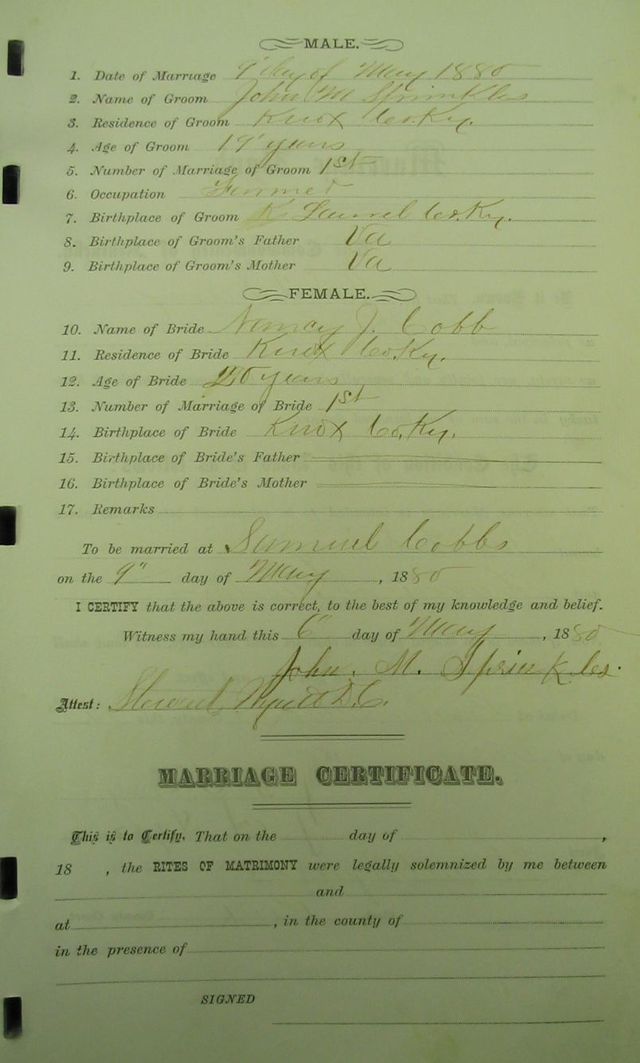 MALE.
1. Date of Marriage 9" day of May 1880
2. Name of Groom John M Sprinkles
3. Residence of Groom Knox Co. Ky.
4. Age of Groom 19 years
5. Number of Marriage of Groom 1st
6. Occupation Farmer
7. Birthplace of Groom Laurel Co. Ky.
8. Birthplace of Groom's Father Va
9. Birthplace of Groom's Mother Va
FEMALE.
10. Name of Bride Nancy J. Cobb
11. Residence of Bride Knox Co. Ky.
12. Age of Bride 20 years
13. Number of Marriage of Bride 1st
14. Birthplace of Bride Knox Co. Ky.
15. Birthplace of Bride's Father
16. Birthplace of Bride's Mother
17. Remarks
To be married at Samuel Cobbs
on the 9" day of May, 1880
I CERTIFY that the above is correct, to the best of my knowledge and belief.
Witness my hand this 6" day of May, 1880
John. M. Sprinkles.
Attest: D.C.
MARRIAGE CERTIFICATE.
This is to Certify. That on the day of ,
18 , the RITES OF MATRIMONY were legally solemnized by me between
and
at , in the county of
in the presence of
SIGNED